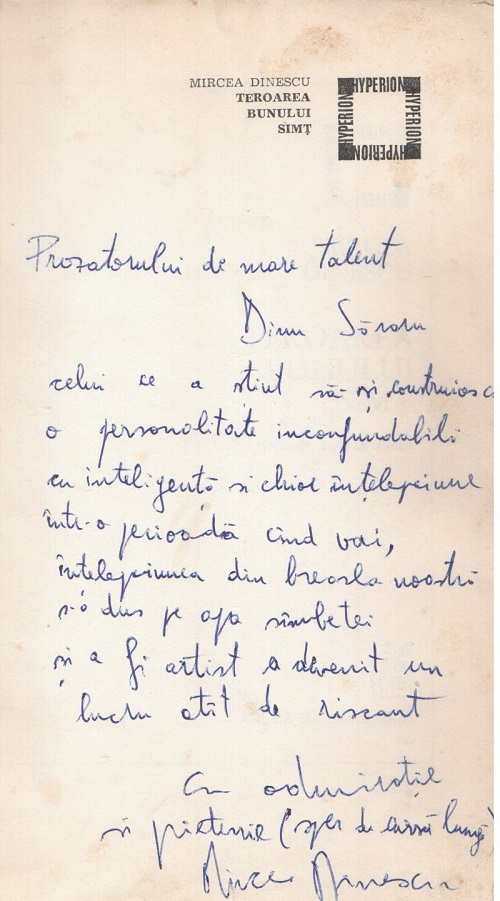 MIRCEA DINESCU
TEROAREA
BUNULUI
SIMȚ
HYPERION
HYPERION
HYPERION
HYPERION
Prozatorului de mare talent
Dinu Săraru
celui ce a știut să-și construiasc
o personalitate inconfundabilă
cu inteligență și chiar înțelepciune
într-o perioadă cînd vai,
înțelepciunea din breasla noastră
s-a dus pe apa sîmbetei
și a fi artist a devenit un
lucru atît de riscant
Cu admirație
și prietenie (sper de cursă lungă)
Mircea Dinescu